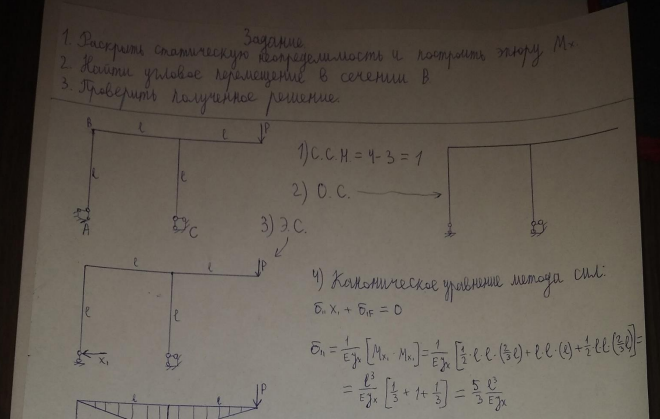 Задание
1. Раскрыть статическую неопределимость и построить эпюру Mx.
2. Найти угловое перемещение в сечении B
3. Проверить полученное решение.
B l l P
1) С.С.Н. = 4-3 = 1
l l
2) О.С.
A C
3) Э.С.
l l P
4) Каноническое уравнение метода сил:
l l
δ11 X1 + δ1F = 0
X1
δ11 = 1/EJx [Mx1 · Mx1] = 1/EJx [1/2 · l · l · (2/3 l) + l · l · (l) + 1/2 l · l · (2/3 l)] =
= l³/EJx [1/3 + 1 + 1/3] = 5/3 l³/EJx
l l P